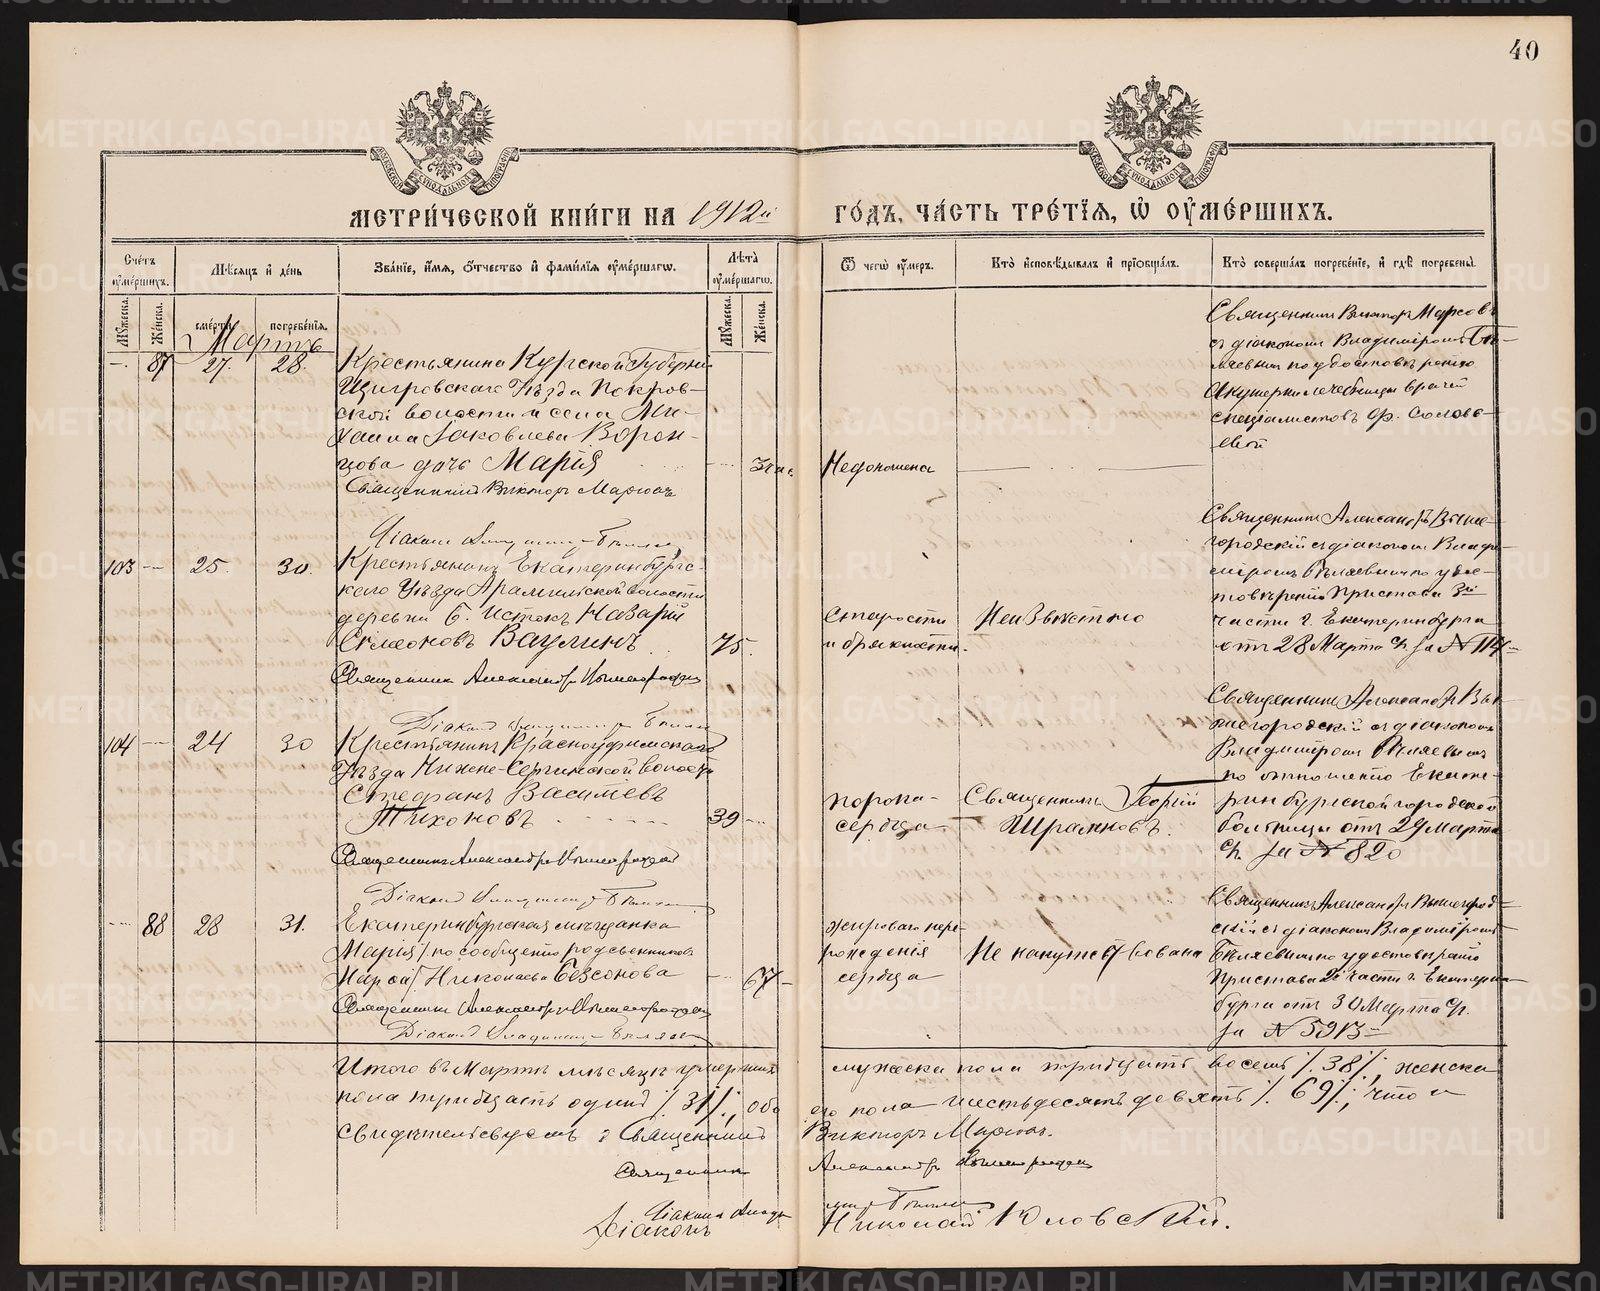 40
МЕТРИ́ЧЕСКОЙ КНИ́ГИ НА 1912й ГО́ДЪ, ЧА́СТЬ ТРЕ́ТЇѦ, Ѡ҆ ОУ҆МЕ́РШИХЪ.
Сче́тъ оу҆ме́ршихъ.
Мѣ́сяцъ и҆ де́нь
Зва́нїе, и҆́мя, ѻ҆́тчество и҆ фами́лїя оу҆ме́ршагѡ.
Лѣ́та оу҆ме́ршагѡ.
Ѿ чегѡ̀ оу҆́меръ.
Кто̀ и҆сповѣ́дывалъ и҆ прїѡбща́лъ.
Кто̀ соверша́лъ погребе́нїе, и҆ гдѣ̀ погребены̀.
Му́жеска.
Же́нска.
сме́рти.
погребе́нїя.
Му́жеска.
Же́нска.
Мартъ
87 27. 28.
Крестьянина Курской Губерніи
Щигровскаго Уѣзда Покров-
ской волости и села Ми-
хаила Іаковлева Ворон-
цова дочь Марія
Священникъ Викторъ
Діаконъ
3 час.
Недоношена
Священникъ Викторъ
съ діакономъ Владиміромъ Бѣ-
ляевымъ по удостовѣренію
Акушерки лечебницы врачей
спеціалистовъ Ф. Соловь-
евой
103 25. 30.
Крестьянинъ Екатеринбургс-
каго Уѣзда Арамильской волости
деревни Б. Истокъ Назарій
Симеоновъ Ваулинъ
Священникъ Александръ
Діаконъ
75.
Старости
и дряхлости.
Неизвѣстно
Священникъ Александръ Выше-
городскій съ діакономъ Влади-
міромъ Бѣляевымъ по удос-
товѣренію Пристава 3й
части г. Екатеринбурга
отъ 28 Марта с/г за № 114
104 24 30
Крестьянинъ Красноуфимскаго
Уѣзда Нижне-Сергинской волости
Стефанъ Василіевъ
Тихоновъ
Священникъ Александръ
Діаконъ
39
порока
сердца
Священникъ Георгій
Священникъ Александръ Вы-
шегородскій съ діакономъ
Владиміромъ Бѣляевымъ
по отношенію Екате-
ринбургской городской
больницы отъ 29 Марта
с/г. за № 820
88 28 31.
Екатеринбургская мѣщанка
Марія /по сообщенію родственниковъ
Николаева Безсонова
Священникъ Александръ
Діаконъ Владиміръ Бѣляевъ
67
жироваго пере-
рожденія
сердца
Не напутствована
Священникъ Александръ Вышегород-
скій съ діакономъ Владиміромъ
Бѣляевымъ по удостовѣренію
Пристава 2й части г. Екатерин-
бурга отъ 30 Марта с/г.
за № 5913
Итого въ Мартѣ мѣсяцѣ умершихъ мужеска пола тридцать восемь /. 38 /., женска
пола тридцать одинъ /. 31 /., обо его пола шестьдесятъ девять /. 69 /., что и
свидѣтельствуемъ: Священникъ Викторъ
Священникъ Александръ
Діаконъ
Діаконъ Николай